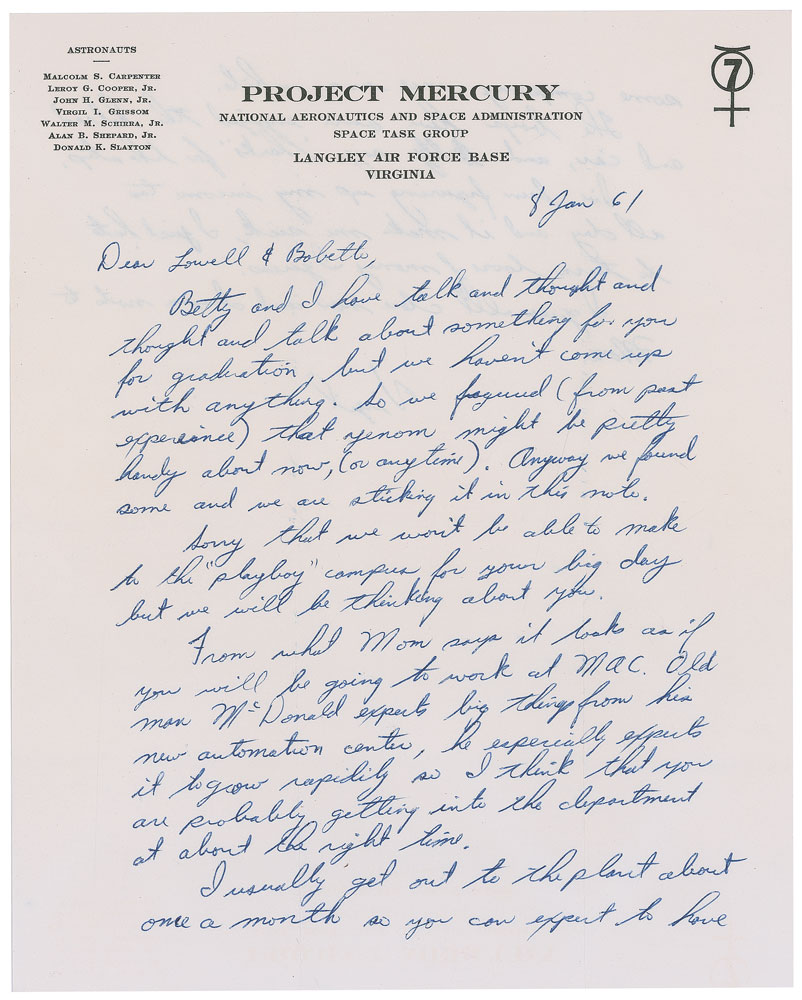 ASTRONAUTS
MALCOLM S. CARPENTER
LEROY G. COOPER, JR.
JOHN H. GLENN, JR.
VIRGIL I. GRISSOM
WALTER M. SCHIRRA, JR.
ALAN B. SHEPARD, JR.
DONALD K. SLAYTON
PROJECT MERCURY
NATIONAL AERONAUTICS AND SPACE ADMINISTRATION
SPACE TASK GROUP
LANGLEY AIR FORCE BASE
VIRGINIA
7
8 Jan 61
Dear Lowell & Bobette,
Betty and I have talk and thought and
thought and talk about something for you
for graduation, but we haven't come up
with anything. So we fagured (from past
experience) that yenom might be pretty
handy about now, (or anytime). Anyway we found
some and we are sticking it in this note.
Sorry that we won't be able to make
to the "playboy" campus for your big day
but we will be thinking about you.
From what Mom says it looks as if
you will be going to work at MAC. Old
man McDonald expects big things from his
new automation center, he especially expects
it to grow rapidily so I think that you
are probably getting into the department
at about the right time.
I usually get out to the plant about
once a month so you can expect to have